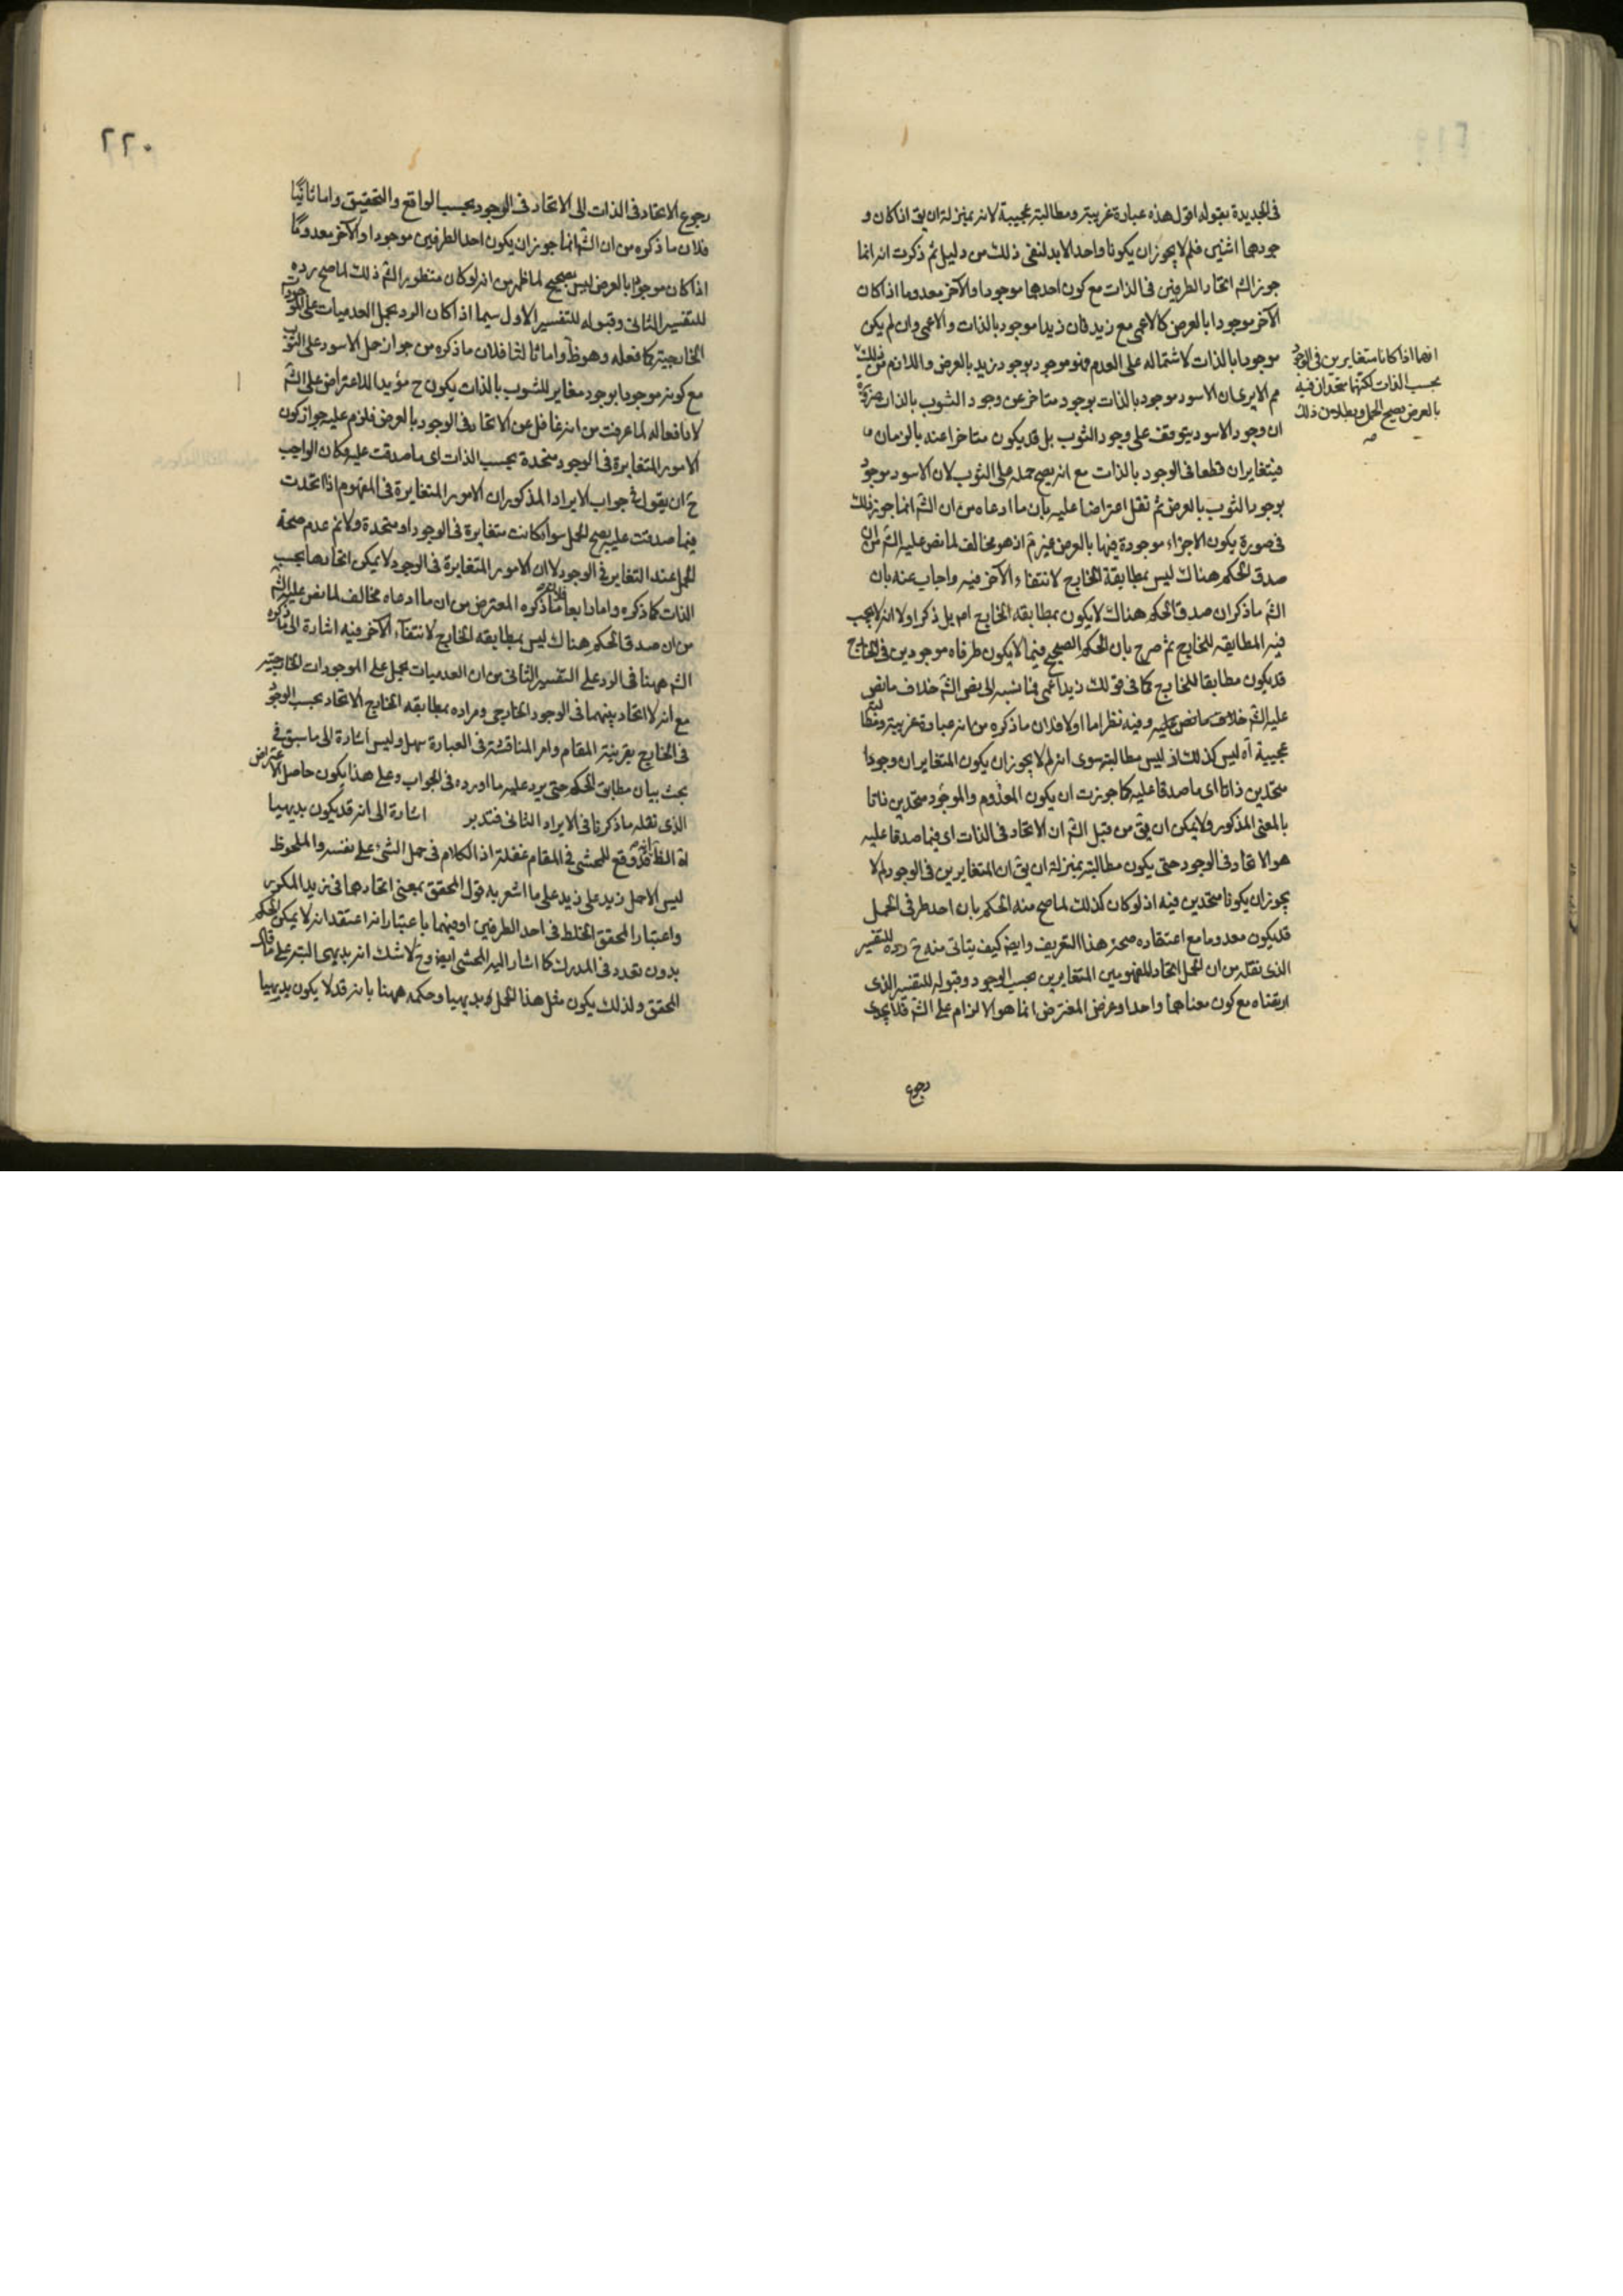 فى الجديدة بقوله اقول هذه عبارة غريبة ومطالبة عجيبة لانه بمنزلة ان يق اذا كان و
جودهما اثنين فلم لا يجوز ان يكونا واحدا لابد لنفى ذلك من دليل ثم ذكرت انه انما
جوز الشه اتحاد الطرفين فى الذات مع كون احدهما موجودا والآخر معدوما اذا كان
الآخر موجودا بالعرض كالاعمى مع زيد فان زيدا موجود بالذات والاعمى وان لم يكن
موجودا بالذات لاشتماله على العدم فهو موجود بوجود زيد بالعرض واللازم من ذلك
انهما اذا كانا متغايرين فى الوجود
بحسب الذات لكنهما متحدان فيه
بالعرض يصح الحمل وبطلان ذلك
مم الا يرى ان الاسود موجود بالذات بوجود متاخر عن وجود الثوب بالذات ضرورة
ان وجود الاسود يتوقف على وجود الثوب بل قد يكون متاخرا عنه بالزمان
فيتغايران قطعا فى الوجود بالذات مع انه يصح حمله على الثوب لان الاسود موجود
بوجود الثوب بالعرض ثم نقل اعتراضا عليه بان ما ادعاه من ان الشه انما جوز ذلك
فى صورة يكون الاجزاء موجودة فيها بالعرض غير مم اذ هو مخالف لما نص عليه الشه من ان
صدق الحكم هناك ليس بمطابقة الخارج لانتفاء الآخر فيه واجاب عنه بان
الشه ما ذكر ان صدق الحكم هناك لا يكون بمطابقه الخارج اصلا بل ذكر اولا انه لا يجب
فيه المطابقه للخارج ثم صرح بان الحكم الصحيح فيما لا يكون طرفاه موجودين فى الخارج
قد يكون مطابقا للخارج كما فى قولك زيد اعمى فما نسبه الى نص الشه خلاف ما نص
عليه الشه خلاف ما نص عليه وفيه نظر اما اولا فلان ما ذكره من انه عبارة غريبة ومطالبة
عجيبة آه ليس كذلك اذ ليس مطالبته سوى انه لم لا يجوز ان يكون المتغايران وجودا
متحدين ذاتا اى ما صدقا عليه كما جوزت ان يكون المعدوم والموجود متحدين ذاتا
بالمعنى المذكور ولا يمكن ان يق من قبل الشه ان الاتحاد فى الذات اى فيما صدقا عليه
هو الاتحاد فى الوجود حتى يكون مطالبته بمنزلة ان يق ان المتغايرين فى الوجود لم لا
يجوز ان يكونا متحدين فيه اذ لو كان كذلك لما صح منه الحكم بان احد طرفى الحمل
قد يكون معدوما مع اعتقاده صحة هذا التعريف وايض كيف يتاتى منه ح رده للتفسير
الذى نقله من ان الحمل اتحاد المفهومين المتغايرين بحسب الوجود وقبوله للتفسير الذى
ارتضاه مع كون معناهما واحدا وغرض المعترض انما هو الالزام على الشه فلا يجدى
رجوع
٢٢٠
رجوع الاتحاد فى الذات الى الاتحاد فى الوجود بحسب الواقع والتحقيق واما ثانيا
فلان ما ذكره من ان الشه انما جوز ان يكون احد الطرفين موجودا والآخر معدوما
اذا كان موجودا بالعرض ليس بصحيح لما ظهر من انه لو كان منظور الشه ذلك لما صح رده
للتفسير الثانى وقبوله للتفسير الاول سيما اذا كان الرد بحمل العدميات على الموجودات
الخارجية كما فعله وهو ظ واما ثالثا فلان ما ذكره من جواز حمل الاسود على الثوب
مع كونه موجودا بوجود مغاير للثوب بالذات يكون ح مؤيدا للاعتراض على الشه
لا دافعا له لما عرفت من انه غافل عن الاتحاد فى الوجود بالعرض فلزم عليه جواز كون
الامور المتغايرة فى الوجود متحدة بحسب الذات اى ما صدقت عليه وكان الواجب
ح ان يقول فى جواب الايراد المذكور ان الامور المتغايرة فى المفهوم اذا اتحدت
فيما صدقت عليه يصح الحمل سواء كانت متغايرة فى الوجود او متحدة ولانم عدم صحة
الحمل عند التغاير فى الوجود لا ان الامور المتغايرة فى الوجود لا يمكن اتحادها بحسب
الذات كما ذكره واما رابعا فلان ما ذكره المعترض من ان ما ادعاه مخالف لما نص عليه الشه
من ان صدق الحكم هناك ليس بمطابقه الخارج لانتفاء الآخر فيه اشارة الى ما ذكره
الشه ههنا فى الرد على التفسير الثانى من ان العدميات يحمل على الموجودات الخارجية
مع انه لا اتحاد بينهما فى الوجود الخارجى ومراده بمطابقه الخارج الاتحاد بحسب الوجود
فى الخارج بقرينة المقام وامر المناقشة فى العبارة سهل وليس اشارة الى ما سبق فى
بحث بيان مطابق الحكم حتى يرد عليه ما اورده فى الجواب وعلى هذا يكون حاصل الاعتراض
الذى نقله ما ذكرنا فى الايراد الثانى فتدبر اشارة الى انه قد يكون بديهيا
اه الظ انه قد وقع للمحشى فى المقام غفلة اذ الكلام فى حمل الشئ على نفسه والملحوظ
ليس الا حمل زيد على زيد على ما اشعر به قول المحقق بمعنى اتحادهما فى زيد المكرر
واعتبار المحقق الخلط فى احد الطرفين او فيهما باعتبار انه اعتقد انه لا يمكن الحكم
بدون تعدد فى المدرك كما اشار اليه المحشى ايض وح لا شك انه بديهى البتة على ما قال
المحقق ولذلك يكون مثل هذا الحمل بديهيا وحكمه ههنا بانه قد لا يكون بديهيا